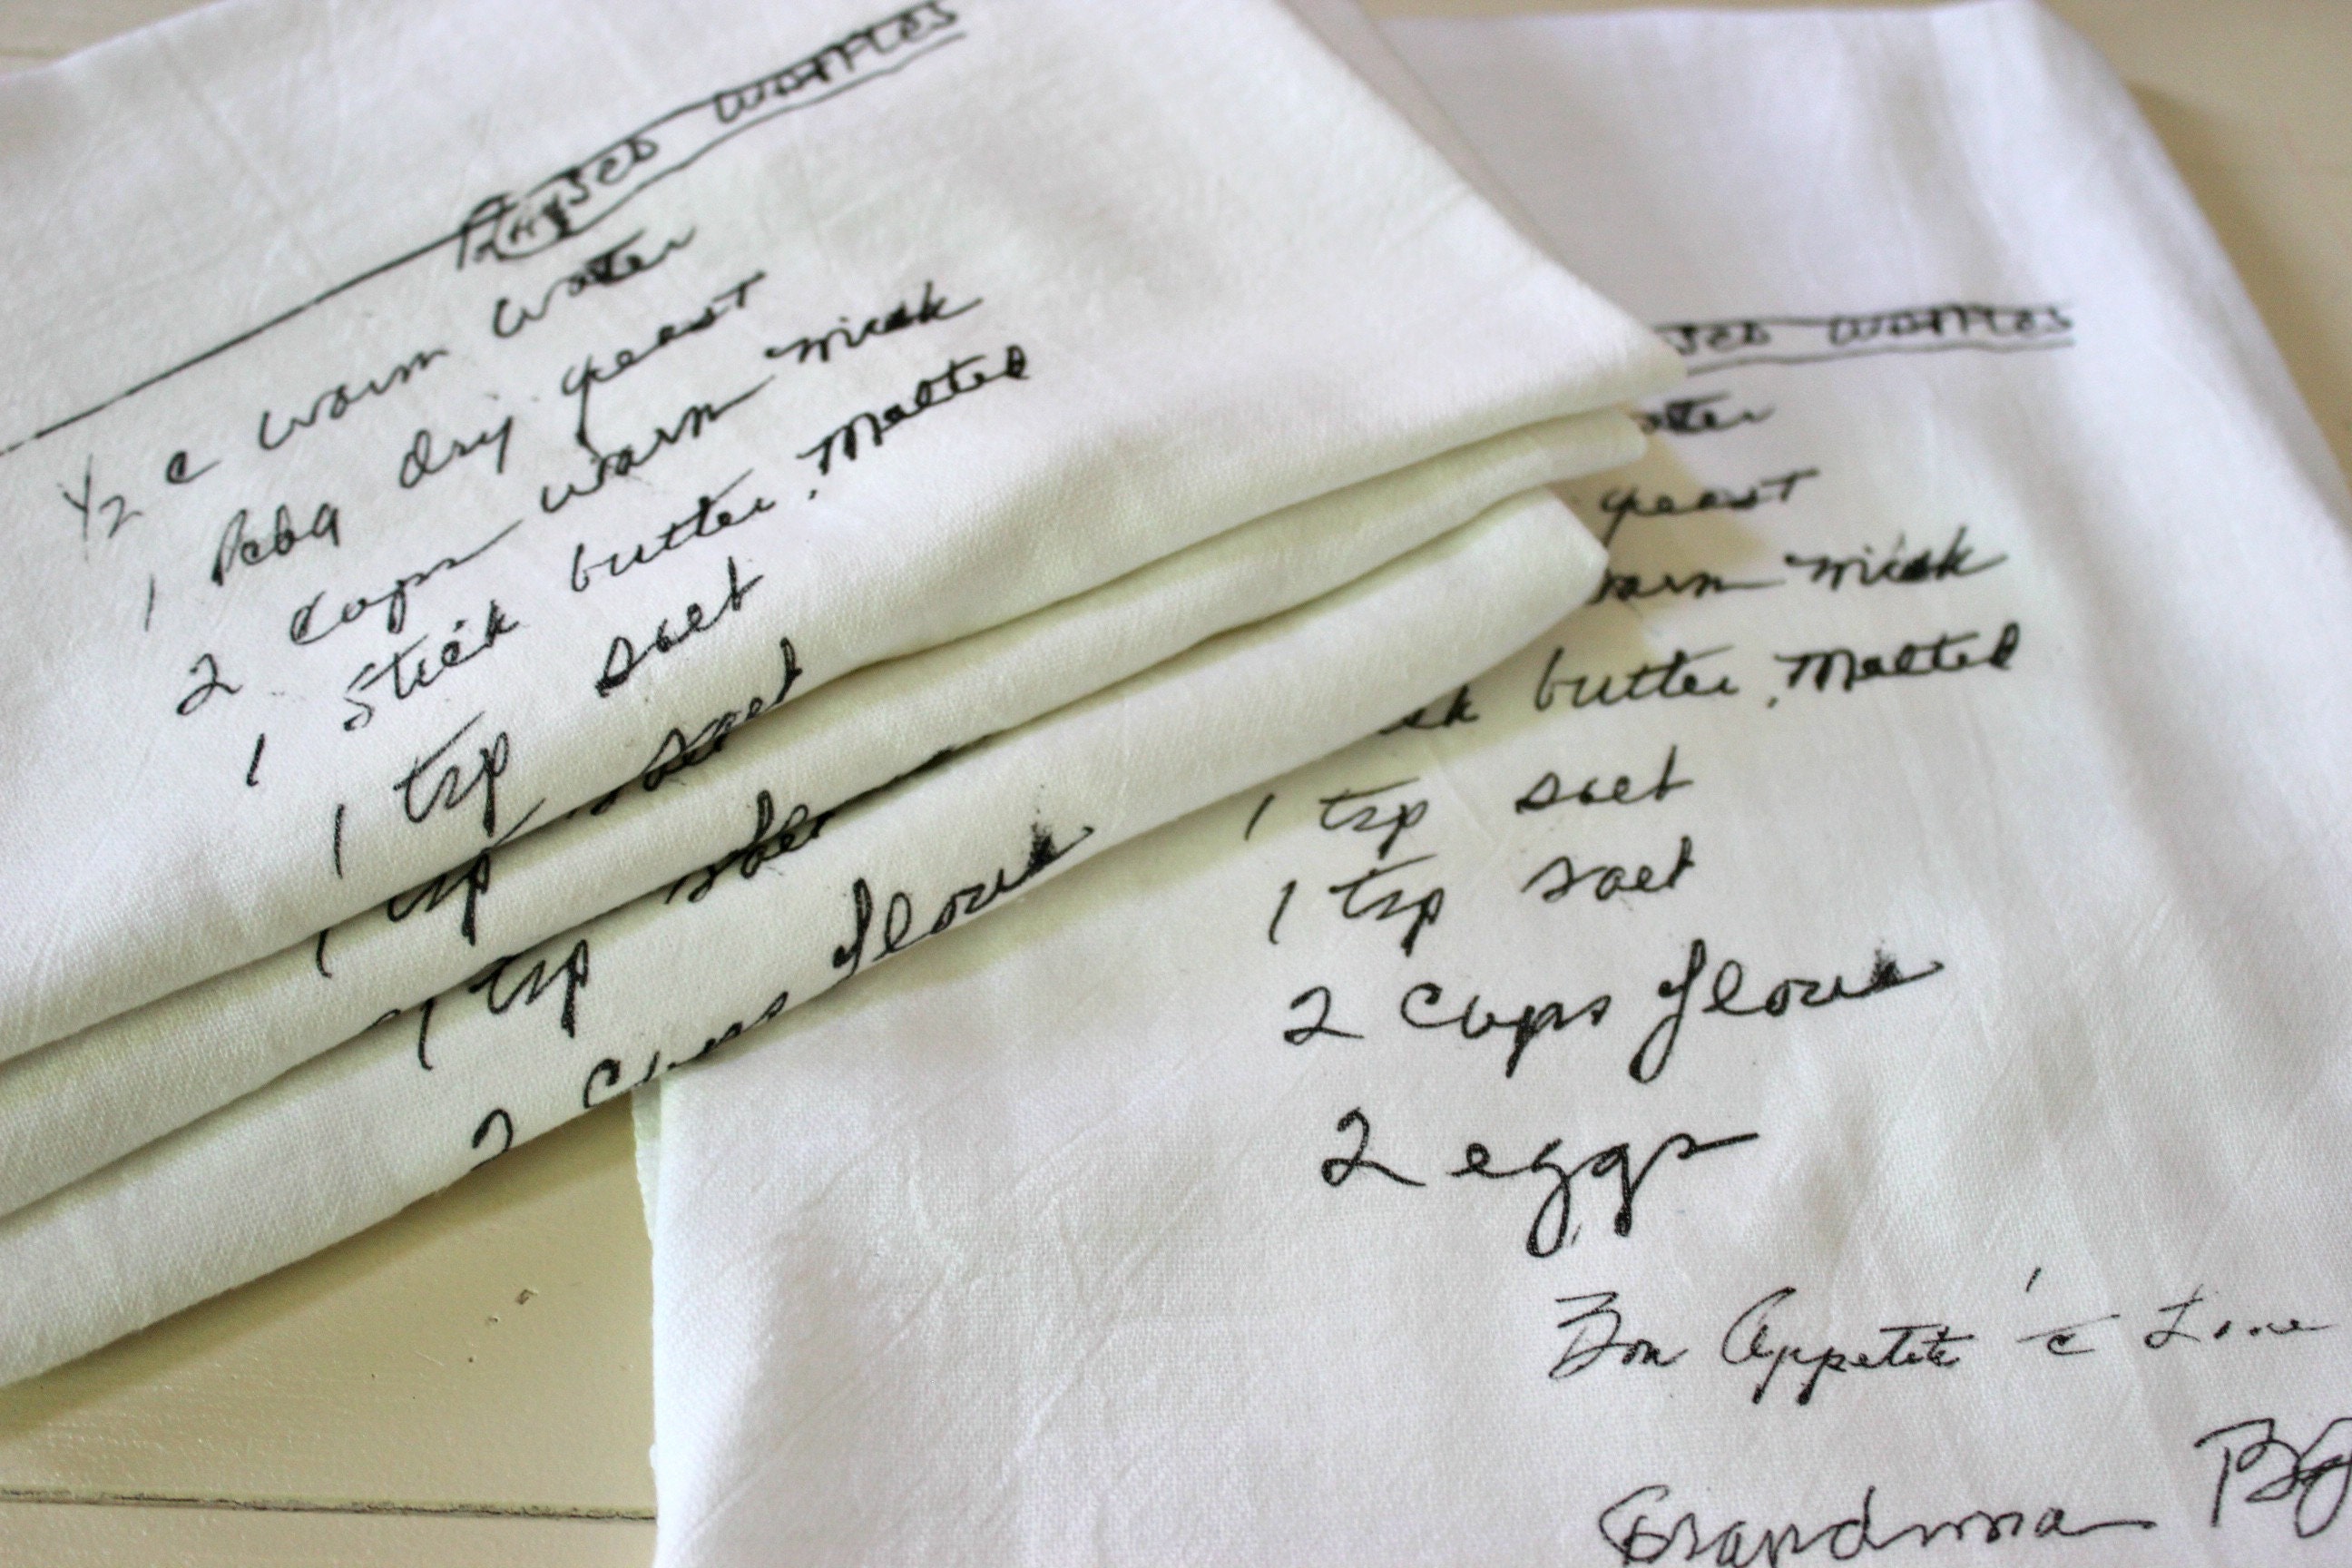 Raised Waffles
1/2 c warm water
1 dry yeast
2 cups warm milk
1 stick butter, Melted
1 tsp salt
1 tsp salt
1 tsp
2 cups flour
sed Waffles
ter
yeast
arm milk
ck butter, Melted
1 tsp salt
1 tsp salt
2 cups flour
2 eggs
Bon Appetite c Love
Grandma